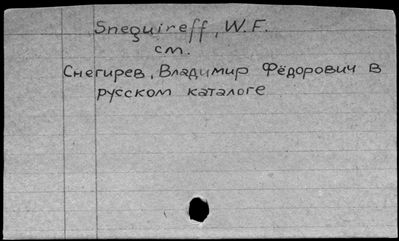 Sneguireff, W.F.
см.
Снегирев, Владимир Фёдорович в
русском каталоге